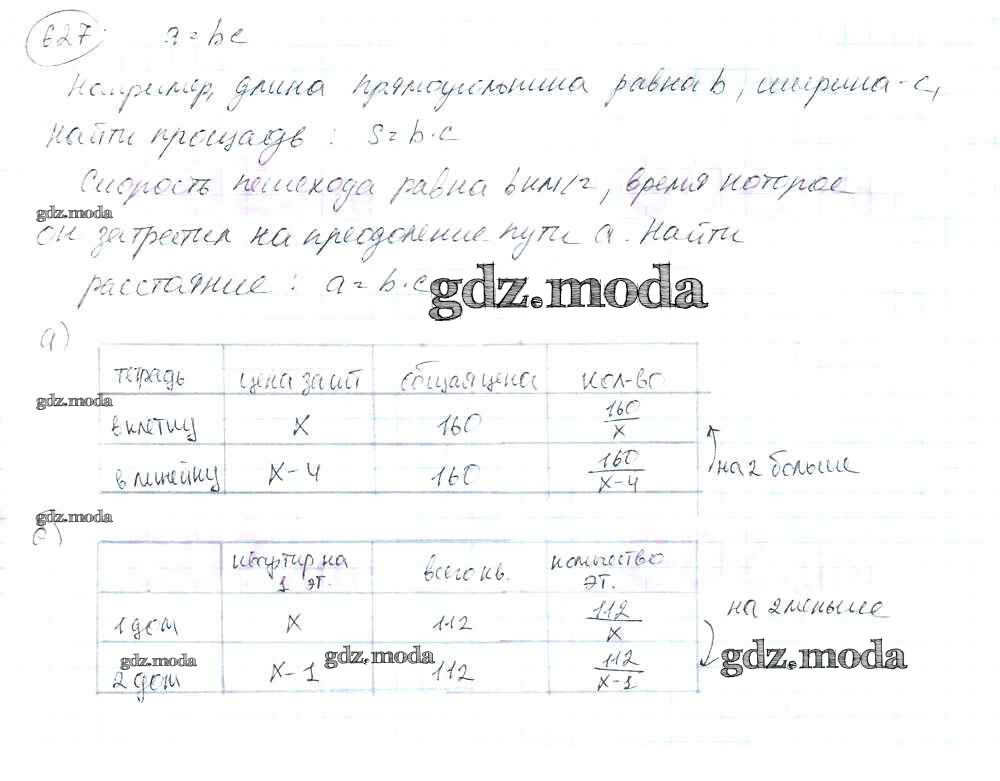 627. a = bc
Например, длина прямоугольника равна b, ширина - c,
найти площадь : S = b · c
Скорость пешехода равна b км/ч, время которое
gdz.moda
он затратил на преодоление пути a. Найти
расстояние : a = b · c
gdz.moda
а)
тетрадь | цена за шт | общая цена | кол-во
gdz.moda
в клетку | x | 160 | 160/x
в линейку | x - 4 | 160 | 160/x-4
на 2 больше
gdz.moda
квартир на 1 эт. | всего кв. | количество эт.
1 дом | x | 112 | 112/x
2 дом | x - 1 | 112 | 112/x-1
на 2 меньше
gdz.moda
gdz.moda
gdz.moda